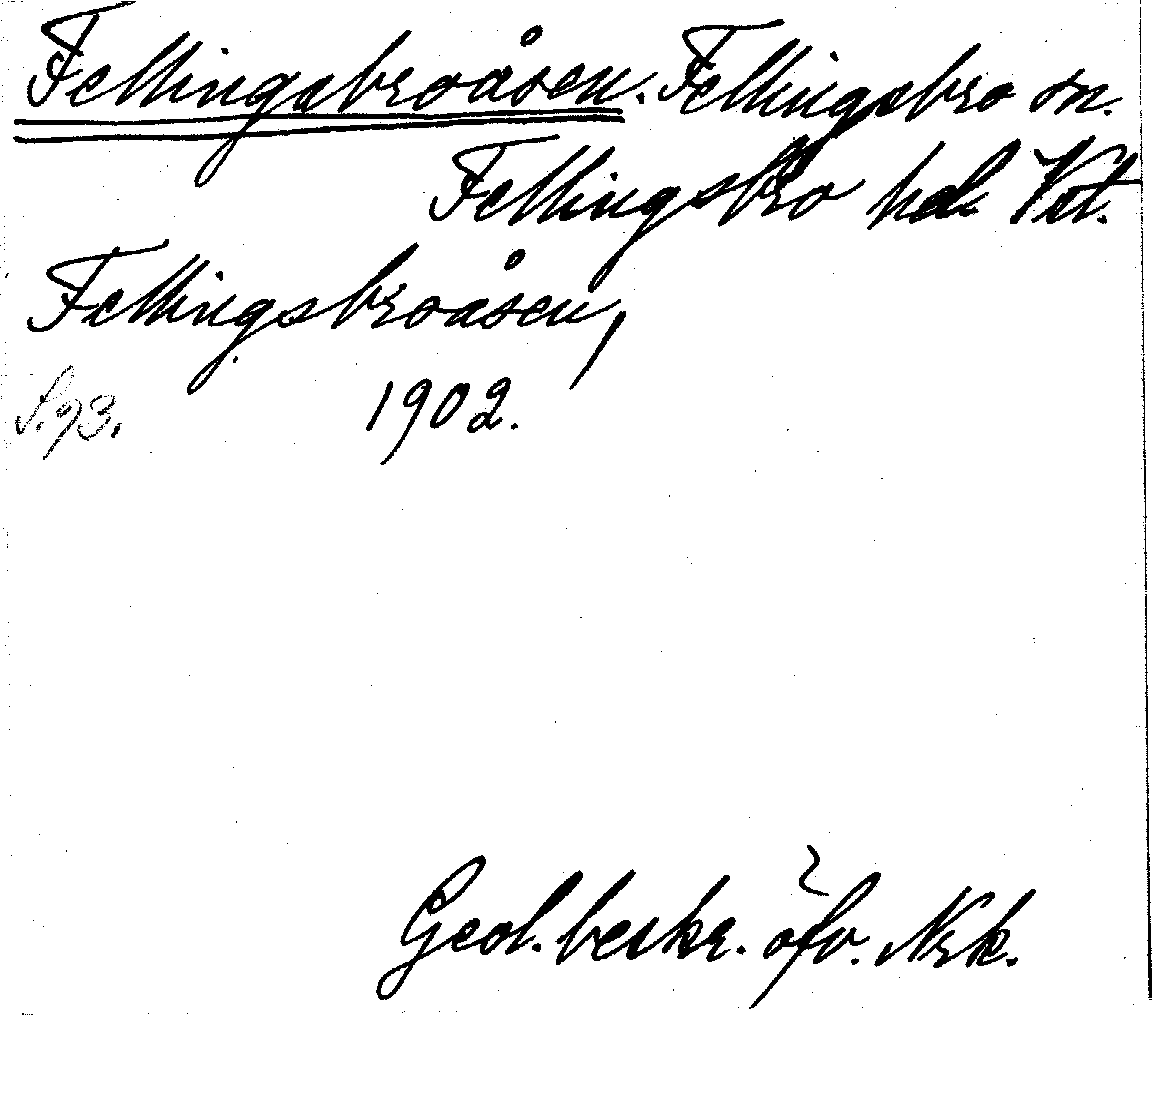 Fellingsbroåsen. Fellingsbro sn.
Fellingsbro hd. Vstm.
Fellingsbroåsen,
S. 93. 1902.
Geol. beskr. öfv. Nrk.